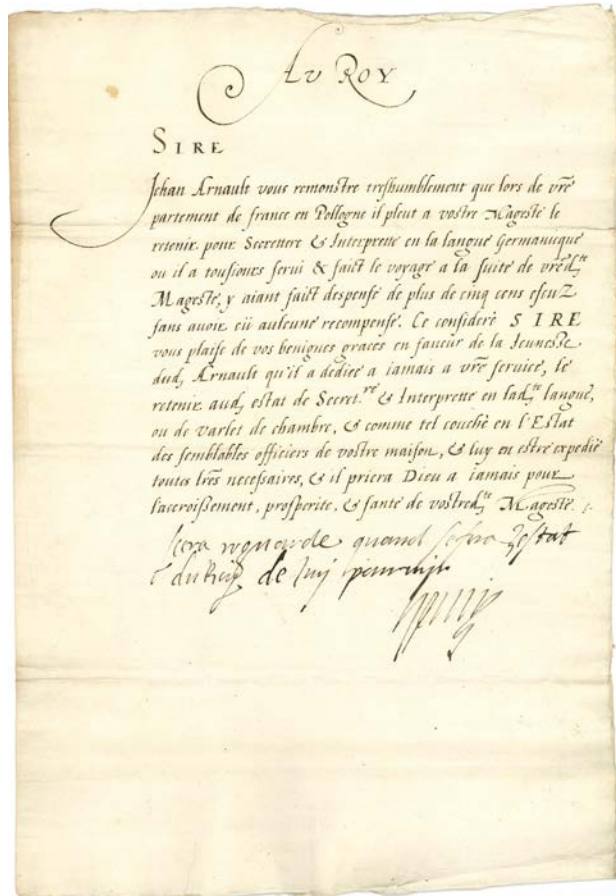 AU ROY
SIRE
Jehan Arnault vous remonstre treshumblement que lors de vr̃e
partement de france en Pollogne il pleut a vostre Magesté le
retenir pour Secrettere & Interprette en la langue Germanicque
ou il a tousiours servi & faict le voyage a la suitte de vr̃ed.te
Magesté, y aiant faict despense de plus de cinq cens escuz
sans avoir eü aulcune recompense. Ce consideré SIRE
vous plaise de vos benignes graces en faveur de la Jeunesse
dud. Arnault qu'il a dediée a iamais a vr̃e service, le
retenir aud. estat de Secret.re & Interprette en lad.te langue,
ou de varlet de chambre, & comme tel couché en l'Estat
des semblables officiers de vostre maison, & luy en estre expedié
toutes lr̃es necessaires, & il priera Dieu a iamais pour
l'accroissement, prosperite, & santé de vostred.te Magesté.
sera quand se fera lestat
de luy